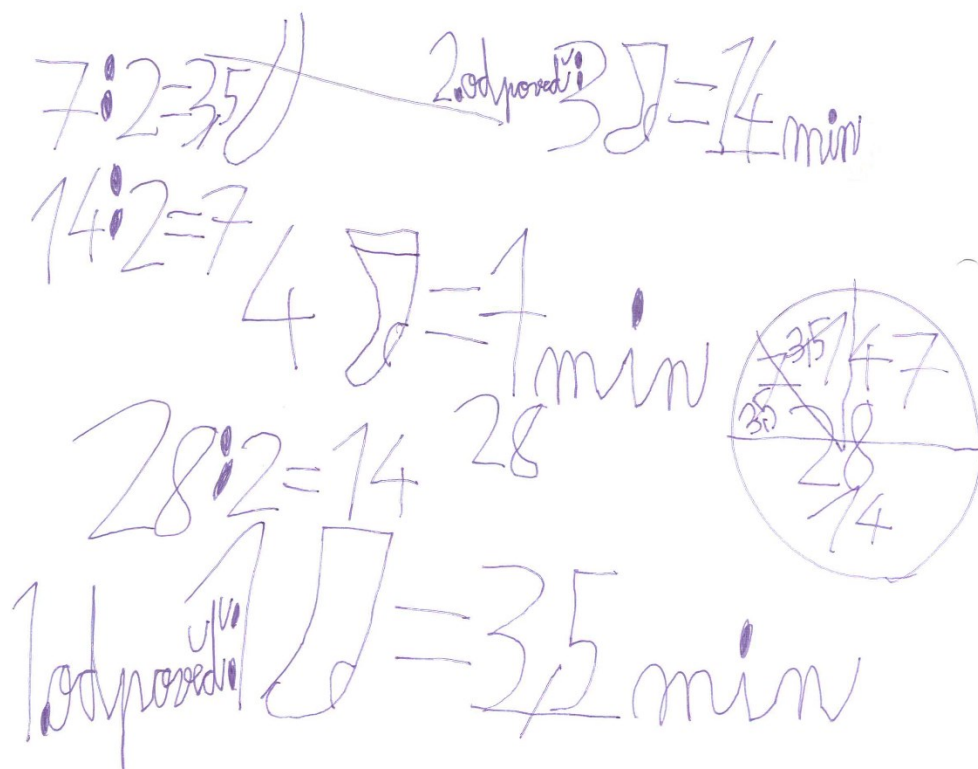 7:2=3,5
2.odpověď: 3 = 14 min
14:2=7
4 = 1 min
28:2=14 28
3,5 14 7
7
3,5 28
14
1.odpověď: 1 = 3,5 min